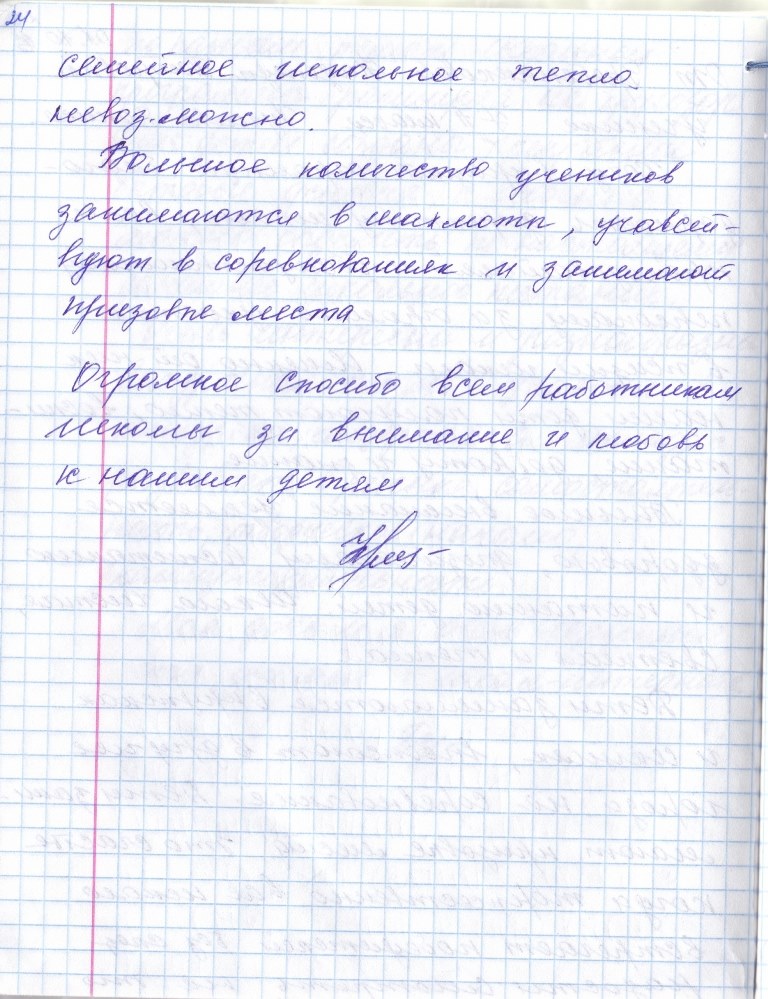 24
семейное школьное тепло
невозможно.
Большое количество учеников
занимаются в шахматы, учавст-
вуют в соревнованиях и занимают
призовые места
Огромное спасибо всем работникам
школы за внимание и любовь
к нашим детям